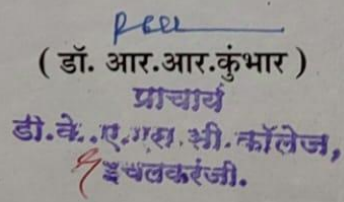 ( डॉ. आर.आर.कुंभार )
प्राचार्य
डी.के.ए.एस.सी.कॉलेज,
इचलकरंजी.